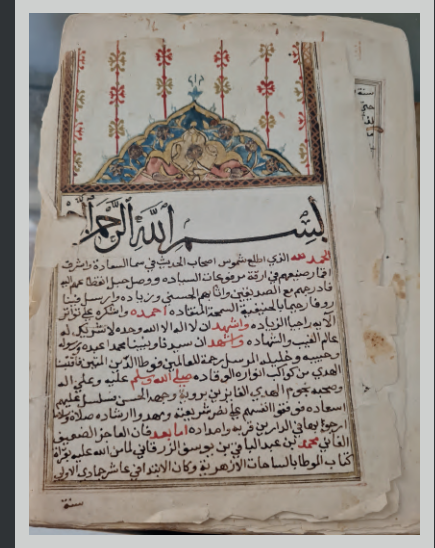 بسم الله الرحمن الرحيم
الحمد لله الذي اطلع شموس اصحاب الحديث في سما السعادة واشرف
اقمار صنيعهم في ارقة مرفوعات السياده ووصل حبل انقطاعهم اليه
فادرجهم مع الصديقين واثابهم الحسنى وزياده وارسل فينا
روفا رحيما بالحنيفية السمحة المنقاده احمده واشكره على تواتر
آلايه راجيا الزياده واشهد ان لا اله الا الله وحده لا شريك له
عالم الغيب والشهاده واشهد ان سيدنا ونبينا محمدا عبده ورسوله
وحبيبه وخليله المرسل رحمة للعالمين
الهدى من كواكب انواره الوقاده صلى الله وسلم عليه وعلى اله
وصحبه نجوم الهدي الفايزين برويه وجهه الحسن
اسعاده فوقفوا انفسهم على نصر شريعته ومهدوا وارشاده صلاة وسلاما
ارجو بهما في الدارين قربه وامداده اما بعد فان العاجز الضعيف
الفاني محمد ابن عبد الباقي بن يوسف الزرقاني لما من الله عليه بقراة
كتاب الموطا بالساحات الازهرية وكان الابتدا في عاشر جمادي الاولى
سنة
سنة